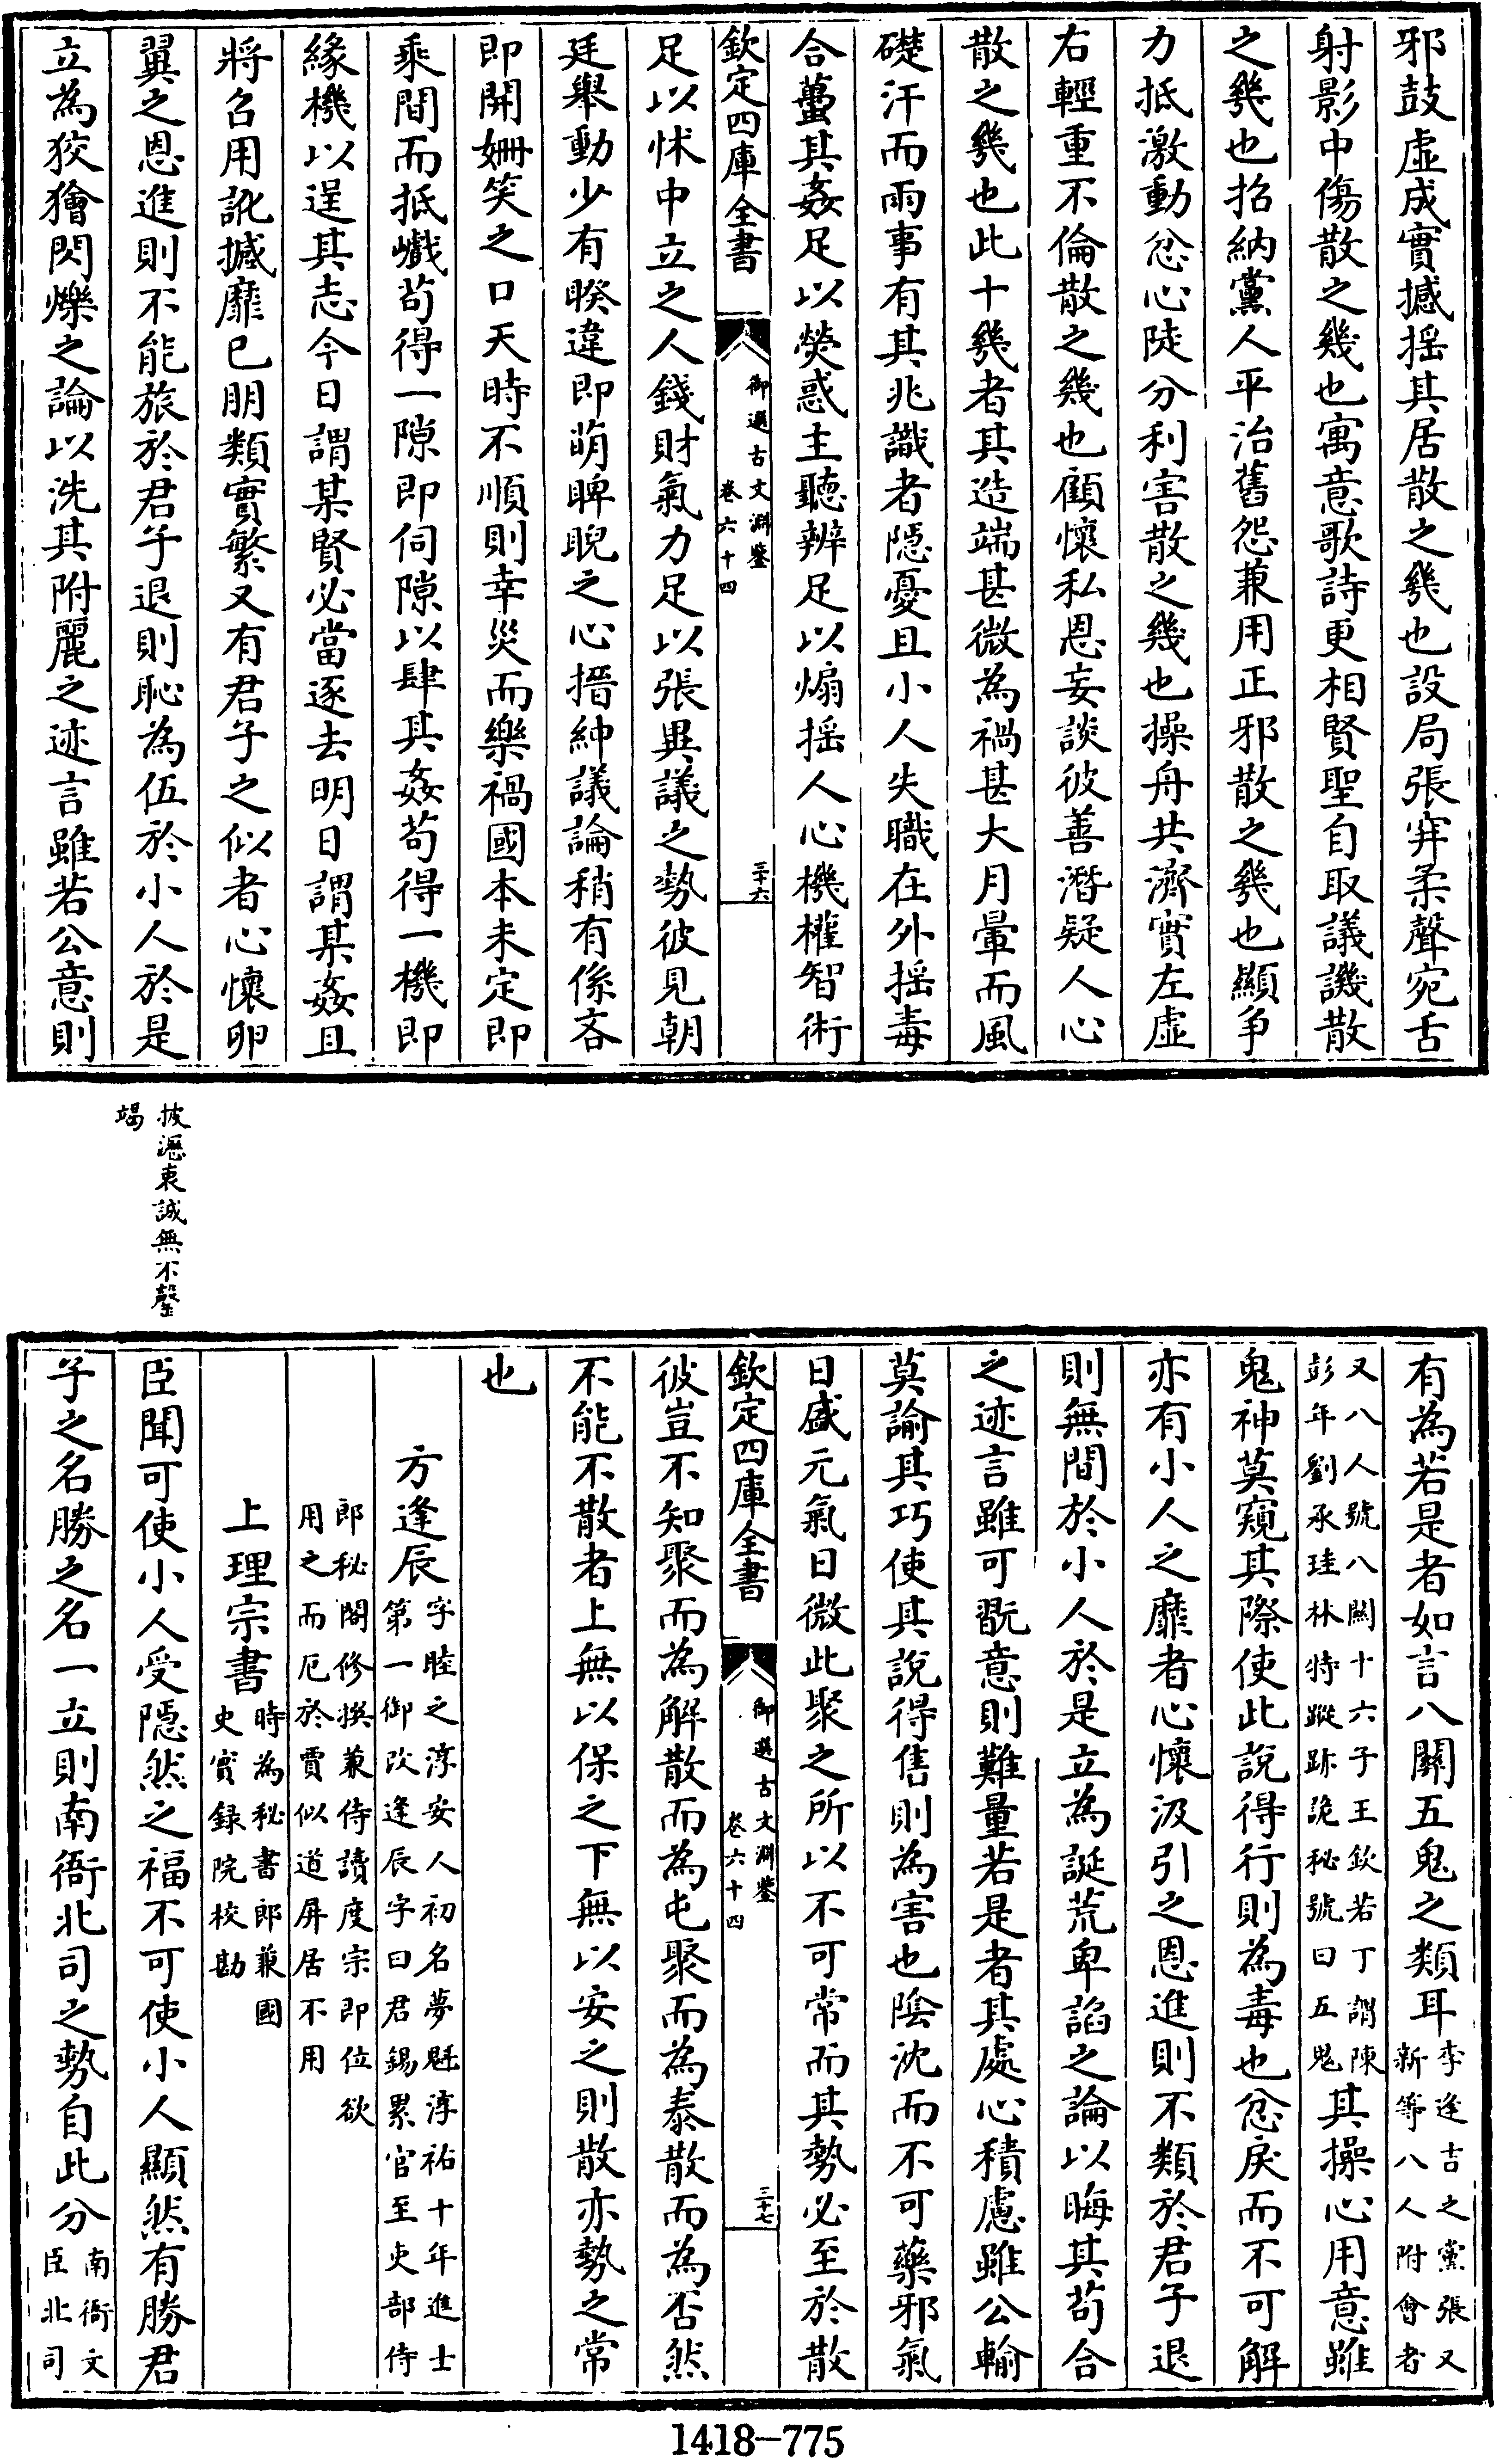 邪鼓虛成實撼揺其居散之幾也設局張穽柔聲宛舌
射影中傷散之幾也寓意歌詩更相賢聖自取議譏散
之幾也招納黨人平治舊怨兼用正邪散之幾也顯争
力抵激動忿心陡分利害散之幾也操舟共濟實左虛
右輕重不倫散之幾也顧懷私恩妄談彼善潛疑人心
散之幾也此十幾者其造端甚微為禍甚大月暈而風
礎汗而雨事有其兆識者隠憂且小人失職在外揺毒
合蠆其姦足以熒惑主聽辨足以煽揺人心機權智術
欽定四庫全書
御選古文淵鑒
卷六十四
三十六
足以怵中立之人錢財氣力足以張異議之勢彼見朝
廷舉動少有睽違即萌睥睨之心搢紳議論稍有係吝
即開姍笑之口天時不順則幸災而樂禍國本未定即
乘間而抵巇苟得一隙即伺隙以肆其姦苟得一機即
緣機以逞其志今日謂某賢必當逐去明日謂某姦且
將召用訛撼靡已朋類實繁又有君子之似者心懷卵
翼之恩進則不能旅於君子退則恥為伍於小人於是
立為狡獪閃爍之論以洗其附麗之迹言雖若公意則
披瀝衷誠無不罄
竭
有為若是者如言八關五鬼之類耳李逢吉之黨張又
新等八人附會者
又八人號八關十六子王欽若丁謂陳
彭年劉承珪林特蹤跡詭秘號曰五鬼其操心用意雖
鬼神莫窺其際使此說得行則為毒也忿戾而不可解
亦有小人之靡者心懷汲引之恩進則不類於君子退
則無間於小人於是立為誕荒卑諂之論以晦其苟合
之迹言雖可翫意則難量若是者其處心積慮雖公輸
莫諭其巧使其說得售則為害也陰沈而不可藥邪氣
日盛元氣日微此聚之所以不可常而其勢必至於散
欽定四庫全書
御選古文淵鑒
卷六十四
三十七
彼豈不知聚而為解散而為屯聚而為泰散而為否然
不能不散者上無以保之下無以安之則散亦勢之常
也
方逢辰字睦之淳安人初名夢魁淳祐十年進士
第一御改逢辰字曰君錫累官至吏部侍
郎秘閣修撰兼侍讀度宗即位欲
用之而厄於賈似道屏居不用
上理宗書時為秘書郎兼國
史實録院校勘
臣聞可使小人受隠然之福不可使小人顯然有勝君
子之名勝之名一立則南衙北司之勢自此分南衙文
臣北司
1418-775